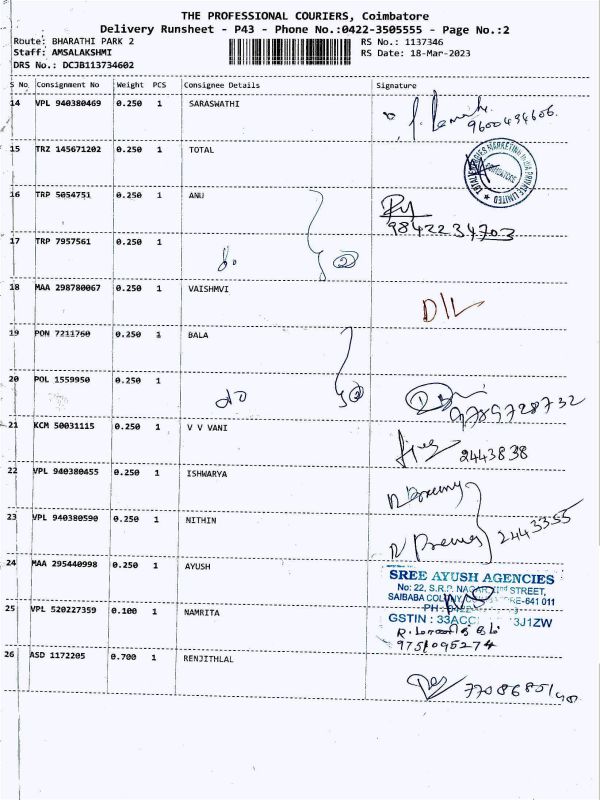 THE PROFESSIONAL COURIERS, Coimbatore
Delivery Runsheet - P43 - Phone No.:0422-3505555 - Page No.:2
Route: BHARATHI PARK 2
RS No.: 1137346
Staff: AMSALAKSHMI
RS Date: 18-Mar-2023
DRS No.: DCJB113734602
S No Consignment No Weight PCS Consignee Details Signature
14 VPL 940380469 0.250 1 SARASWATHI
9600494606.
15 TRZ 145671202 0.250 1 TOTAL
16 TRP 5054751 0.250 1 ANU
9842234703
17 TRP 7957561 0.250 1
do 2
18 MAA 298780067 0.250 1 VAISHMVI
D/L
19 PON 7211760 0.250 1 BALA
20 POL 1559950 0.250 1
do 2
9789728732
21 KCM 50031115 0.250 1 V V VANI
2443838
22 VPL 940380455 0.250 1 ISHWARYA
23 VPL 940380590 0.250 1 NITHIN
2443355
24 MAA 295440998 0.250 1 AYUSH
SREE AYUSH AGENCIES
No: 22, S.R.P. NAGAR, IInd STREET,
SAIBABA COLONY, -641 011
PH
GSTIN : 33ACC 3J1ZW
25 VPL 520227359 0.100 1 NAMRITA
9751095274
26 ASD 1172205 0.700 1 RENJITHLAL